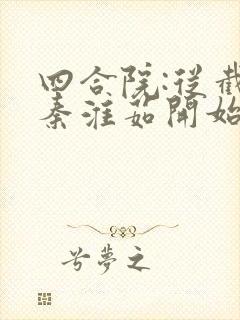 四合院:從截
秦淮茹開始
兮夢之